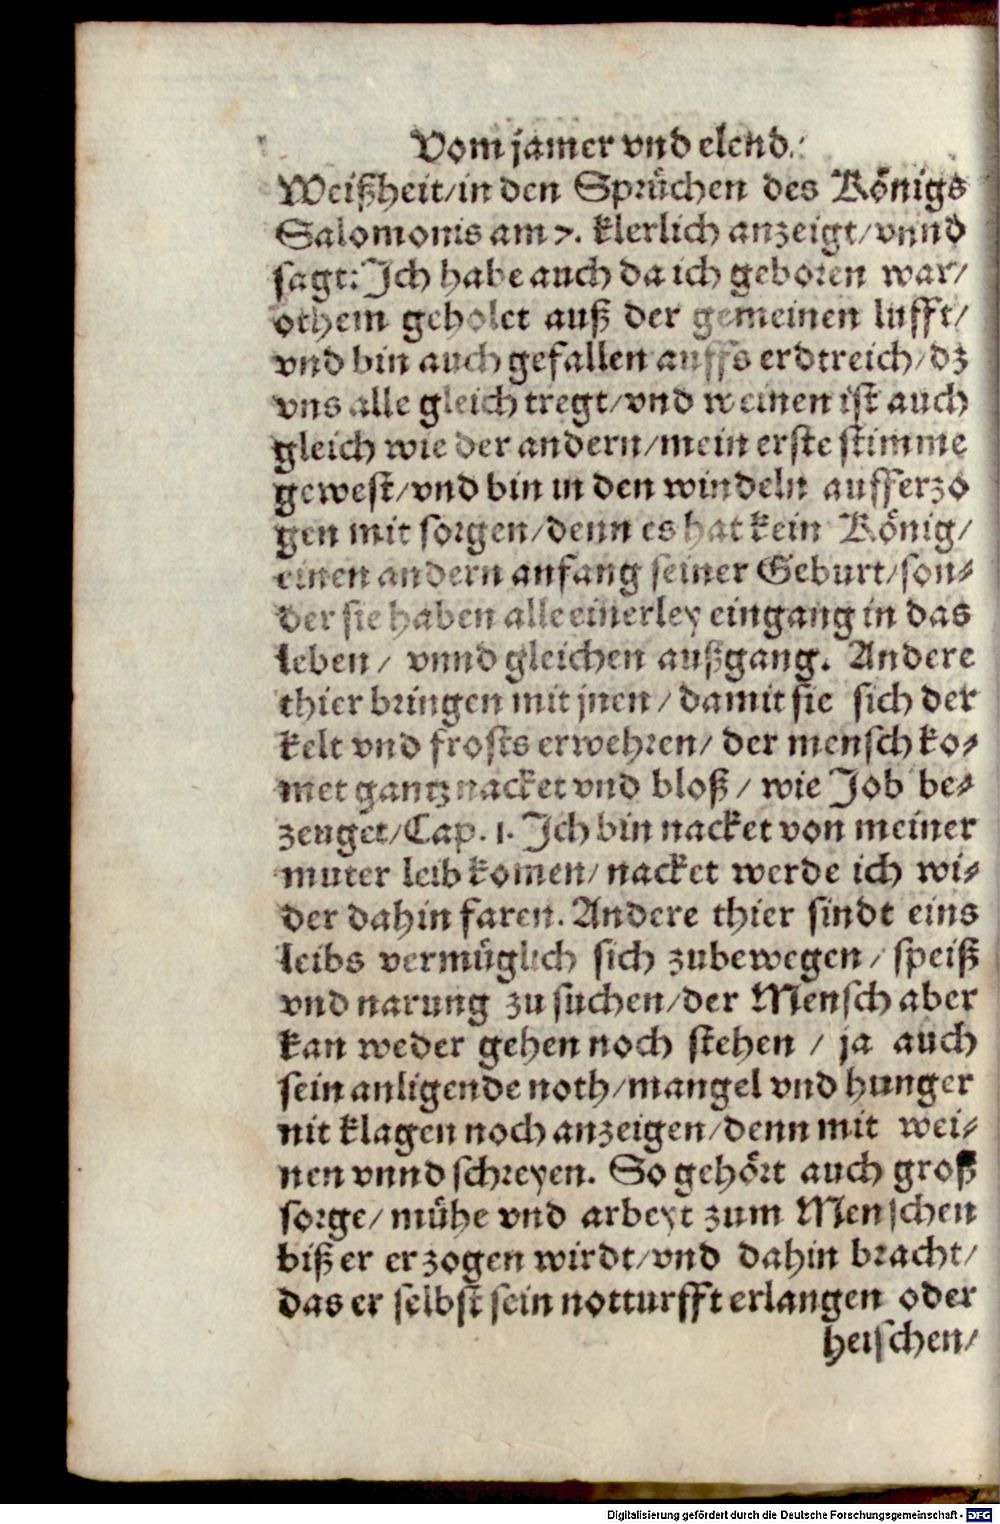 Vom jamer vnd elend.
Weißheit/in den Sprüchen des Königs
Salomonis am 7. klerlich anzeigt/vnnd
sagt: Ich habe auch da ich geboren war/
othem geholet auß der gemeinen lufft/
vnd bin auch gefallen auffs erdtreich/dz
vns alle gleich tregt/vnd weinen ist auch
gleich wie der andern/mein erste stimme
gewest/vnd bin in den windeln aufferzo
gen mit sorgen/denn es hat kein König/
einen andern anfang seiner Geburt/son⸗
der sie haben alle einerley eingang in das
leben/ vnnd gleichen außgang. Andere
thier bringen mit jnen/damit sie sich der
kelt vnd frosts erwehren/ der mensch ko⸗
met gantz nacket vnd bloß/ wie Job be⸗
zeuget/Cap. 1. Ich bin nacket von meiner
muter leib komen/nacket werde ich wi⸗
der dahin faren. Andere thier sindt eins
leibs vermüglich sich zubewegen/speiß
vnd narung zu suchen/der Mensch aber
kan weder gehen noch stehen/ ja auch
sein anligende noth/mangel vnd hunger
nit klagen noch anzeigen/denn mit wei⸗
nen vnnd schreyen. So gehört auch groß
sorge/mühe vnd arbeyt zum Menschen
biß er erzogen wirdt/vnd dahin bracht/
das er selbst sein notturfft erlangen oder
heischen/
Digitalisierung gefördert durch die Deutsche Forschungsgemeinschaft - DFG